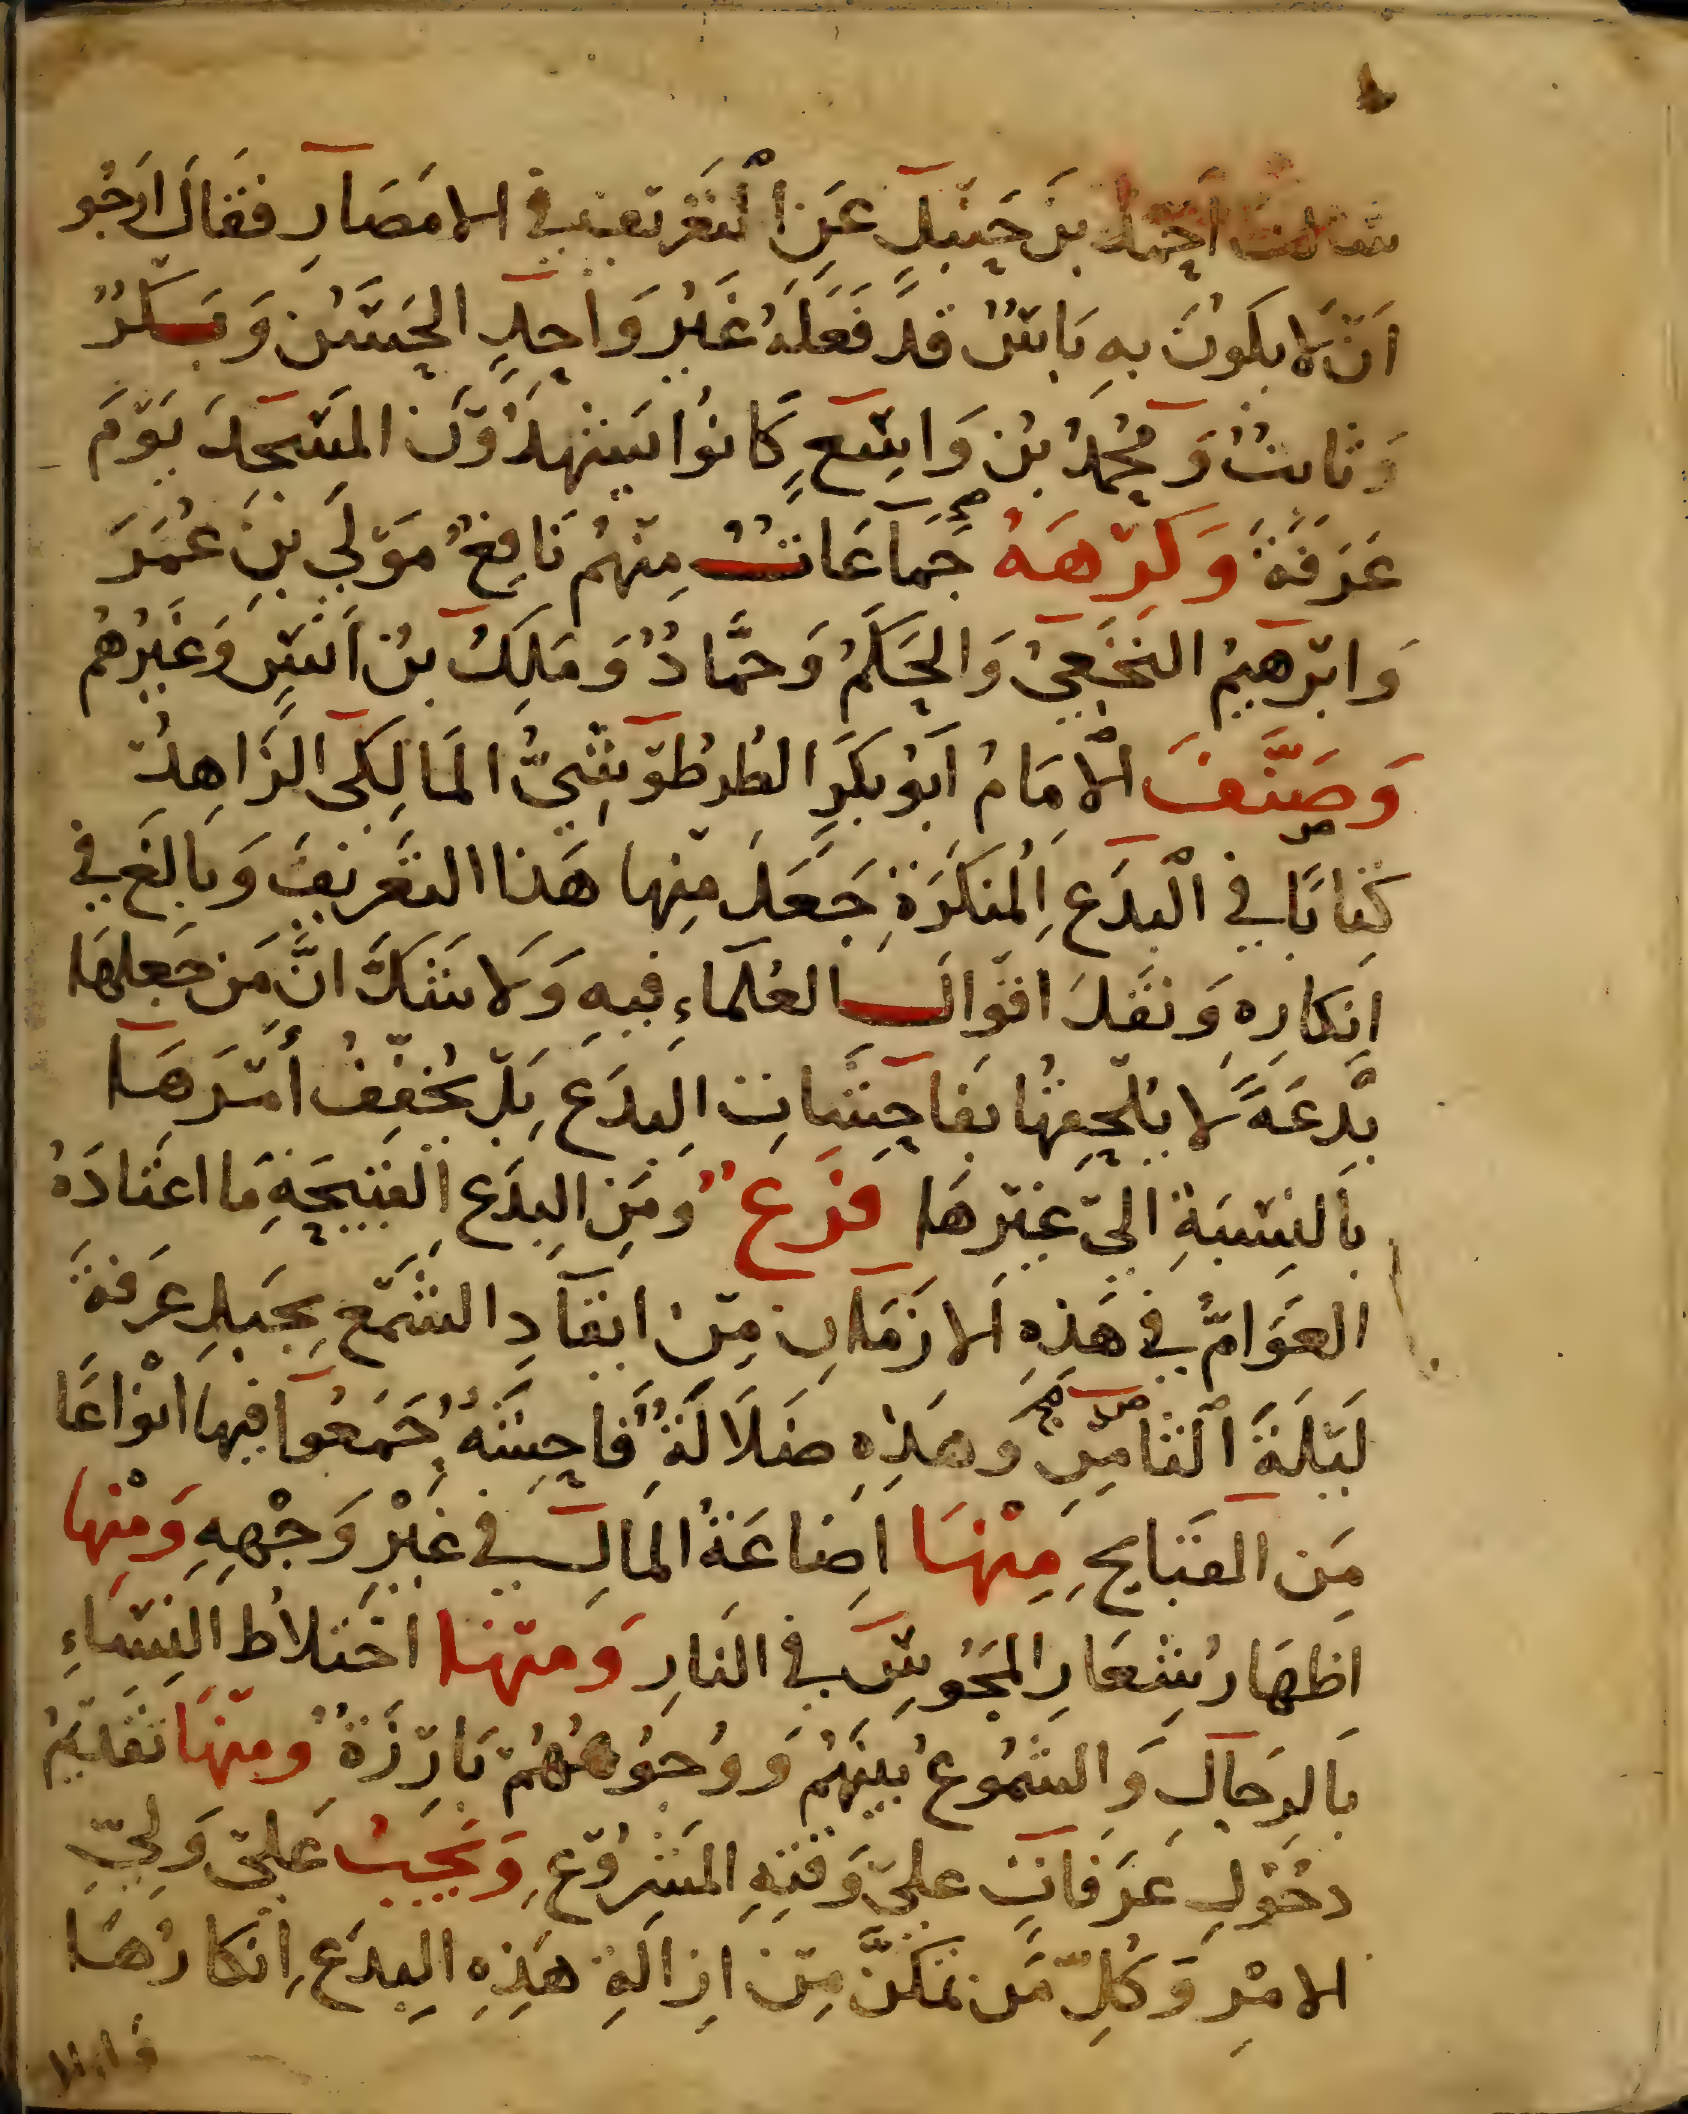 سالت احمد بن حنبل عن التعريف في الامصار فقال ارجو
ان لا يكون به باس قد فعله غير واحد الحسن وبكر
وثابت ومحمد بن واسع كانوا يشهدون المسجد يوم
عرفة وكرهه جماعات منهم نافع مولي بن عمر
وابرهيم النخعي والحكم وحماد وملك بن انس وغيرهم
وصنف الامام ابو بكر الطرطوشي المالكي الزاهد
كتابا في البدع المنكرة جعل منها هذا التعريف وبالغ في
انكاره ونقل اقوال العلماء فيه ولا شك ان من جعلها
بدعة لا يلحقها بفاحشات البدع بل يخفف أمرها
بالنسبة الى غيرها فرع ومن البدع القبيحة ما اعتاده
العوام في هذه الازمان من ايقاد الشمع بجبل عرفة
ليلة التامن وهذه ضلالة فاحشة جمعوا فيها انواعا
من القبايح منها اضاعة المال في غير وجهه ومنها
اظهار شعار المجوس في النار ومنها اختلاط النساء
بالرجال والشموع بينهم ووجوههم بارزة ومنها تقديم
دخول عرفات على وقته المشروع ويجب على ولي
الامر وكل من تمكن من ازالة هذه البدع انكارها